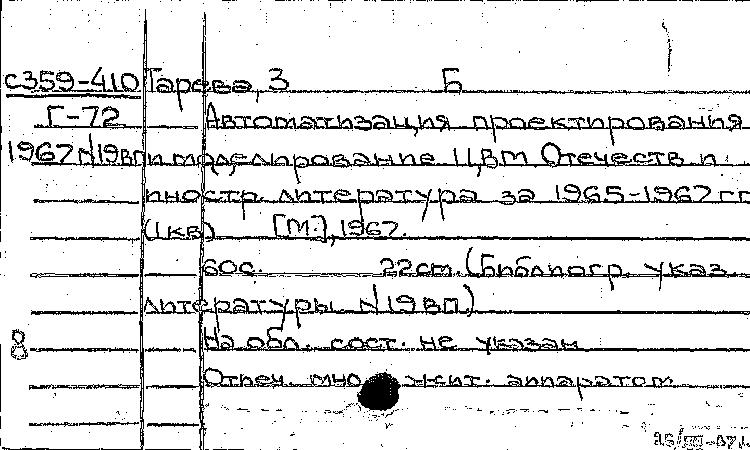 с359-410 Тарева, З Б
Г-72 Автоматизация проектирования
1967 N19вп и моделирование ЦВМ Отечеств и
иностр. литература за 1965-1967 гг
(I кв) [М.], 1967.
60с. 22см. (Библиогр. указ.
литературы N19ВП)
На обл. сост. не указан
8
Отпеч. мно жит. аппаратом